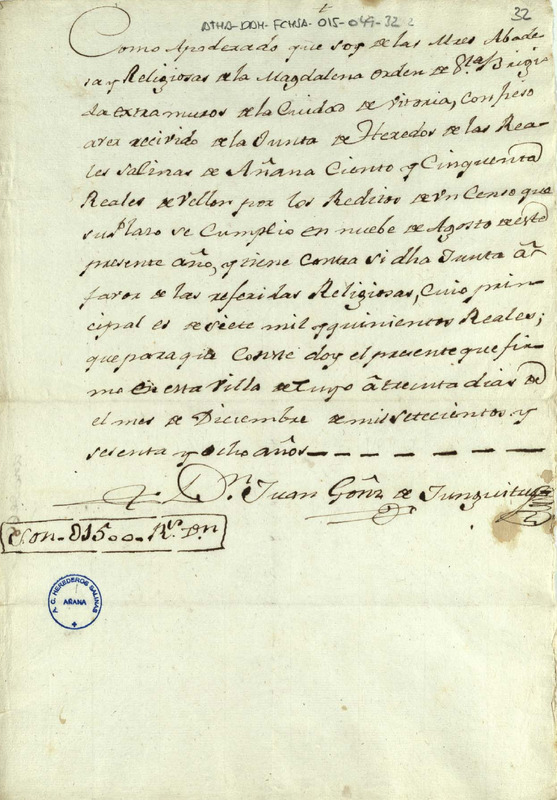 ATHA-DAH-FCHSA-015-049-32
32
Como Apoderado que soy de las Mres Abade
sa y Religiosas de la Magdalena orden de Sta Brigi
da extramuros de la Ciudad de Vitoria, Confieso
aver recivido de la Junta de Heredos de las Rea
les salinas de Añana Ciento y Cinquenta
Reales de Vellon por los Reditos de Vn Censo que
su Plazo se Cumplio en nuebe de Agosto de este
presente año, y tiene Contra si dha Junta â
favor de las referidas Religiosas, Cuio prin
cipal es de siete mil y quinientos Reales;
que para que Conste doy el presente que fir
mo en esta Villa de â treinta dias de
el mes de Diciembre de mil setecientos y
sesenta y ocho años
Dn Juan Gonz de Junguitu
Son-0150-Rs Vn
A. C. HEREDEROS SALINAS
AÑANA